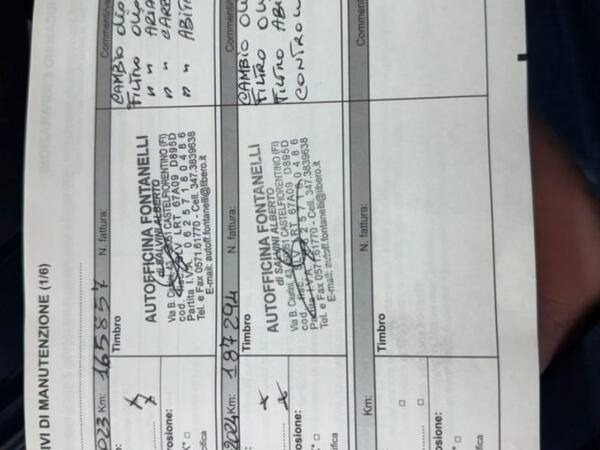 IVI DI MANUTENZIONE (1/6)
023 Km: 165857 N. fattura: Commenti/
Timbro
AUTOFFICINA FONTANELLI
di SALVINI ALBERTO
CASTELFIORENTINO (FI)
LRT 67A09 D895D
Partita I.V.A.
Tel. e Fax 0571.61770 - Cell. 347.3839638
E-mail: autoff.fontanelli@libero.it
CAMBIO OLIO
FILTRO OLIO
" " ARIA
" " CARB
" " ABITA
rosione:
ifica
2024 Km: 187294 N. fattura: Commenti/
Timbro
AUTOFFICINA FONTANELLI
di SALVINI ALBERTO
Via B. Ciurini, 43 CASTELFIORENTINO (FI)
LRT 67A09 D895D
Partita I.V.A.
Tel. e Fax 0571.61770 - Cell. 347.3839638
E-mail: autoff.fontanelli@libero.it
CAMBIO OLI
FILTRO OLI
FILTRO ABI
CONTROLL
rosione:
ifica
Km: N. fattura: Commenti/
Timbro
rosione:
ifica